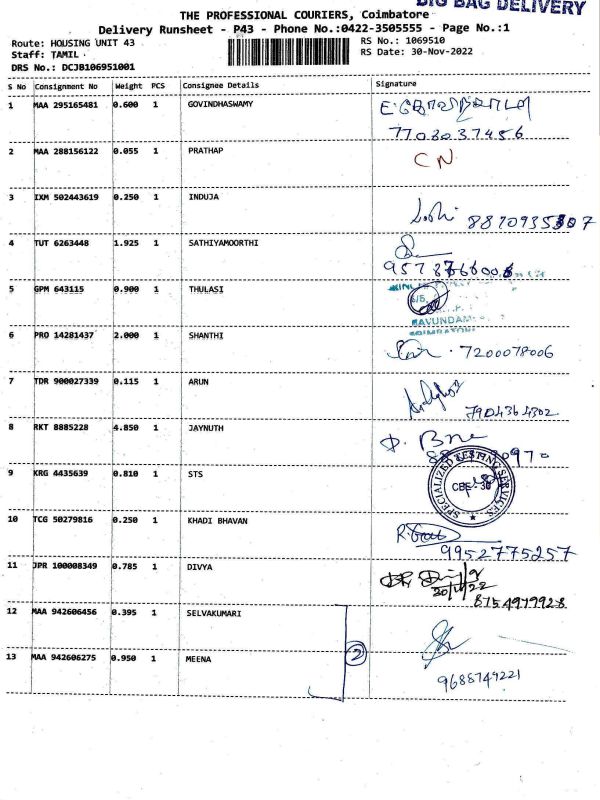 BIG BAG DELIVERY
THE PROFESSIONAL COURIERS, Coimbatore
Delivery Runsheet - P43 - Phone No.:0422-3505555 - Page No.:1
Route: HOUSING UNIT 43
RS No.: 1069510
Staff: TAMIL
RS Date: 30-Nov-2022
DRS No.: DCJB106951001
S No Consignment No Weight PCS Consignee Details Signature
1 MAA 295165481 0.600 1 GOVINDHASWAMY
7703037456
2 MAA 288156122 0.055 1 PRATHAP CN
3 IXM 502443619 0.250 1 INDUJA
4 TUT 6263448 1.925 1 SATHIYAMOORTHI
5 GPM 643115 0.900 1 THULASI
6 PRO 14281437 2.000 1 SHANTHI
7200078006
7 TDR 900027339 0.115 1 ARUN
7904364302
8 RKT 8885228 4.850 1 JAYNUTH
9 KRG 4435639 0.810 1 STS
SPECIALIZED TESTING SERVICES
CBE - 30
10 TCG 50279816 0.250 1 KHADI BHAVAN
9952775257
11 JPR 100008349 0.785 1 DIVYA
30/11/22
8754979928
12 MAA 942606456 0.395 1 SELVAKUMARI
2
13 MAA 942606275 0.950 1 MEENA
9688749221